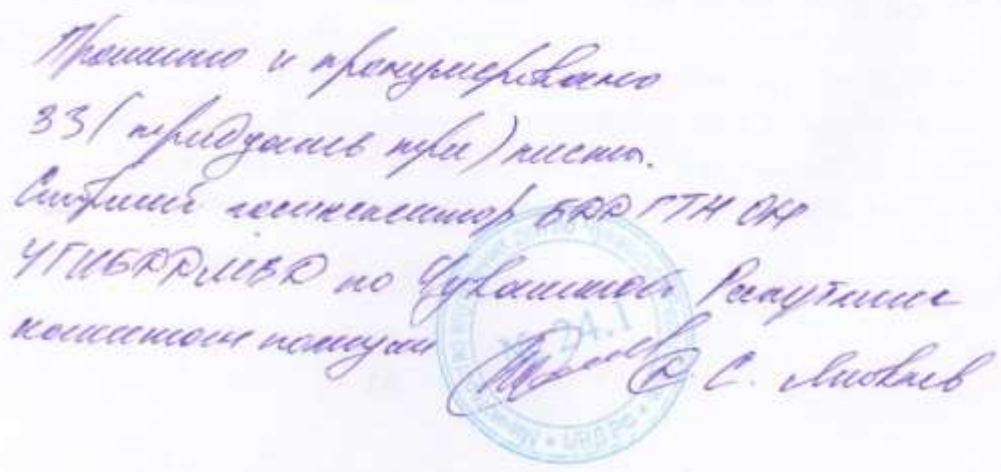 Прошито и пронумеровано
33 (тридцать три) листа.
Старший госинспектор БДД ГТН ОНР
УГИБДД МВД по Чувашской Республике
капитан полиции Д. С. Яковлев
№ 24.1
МВД РФ